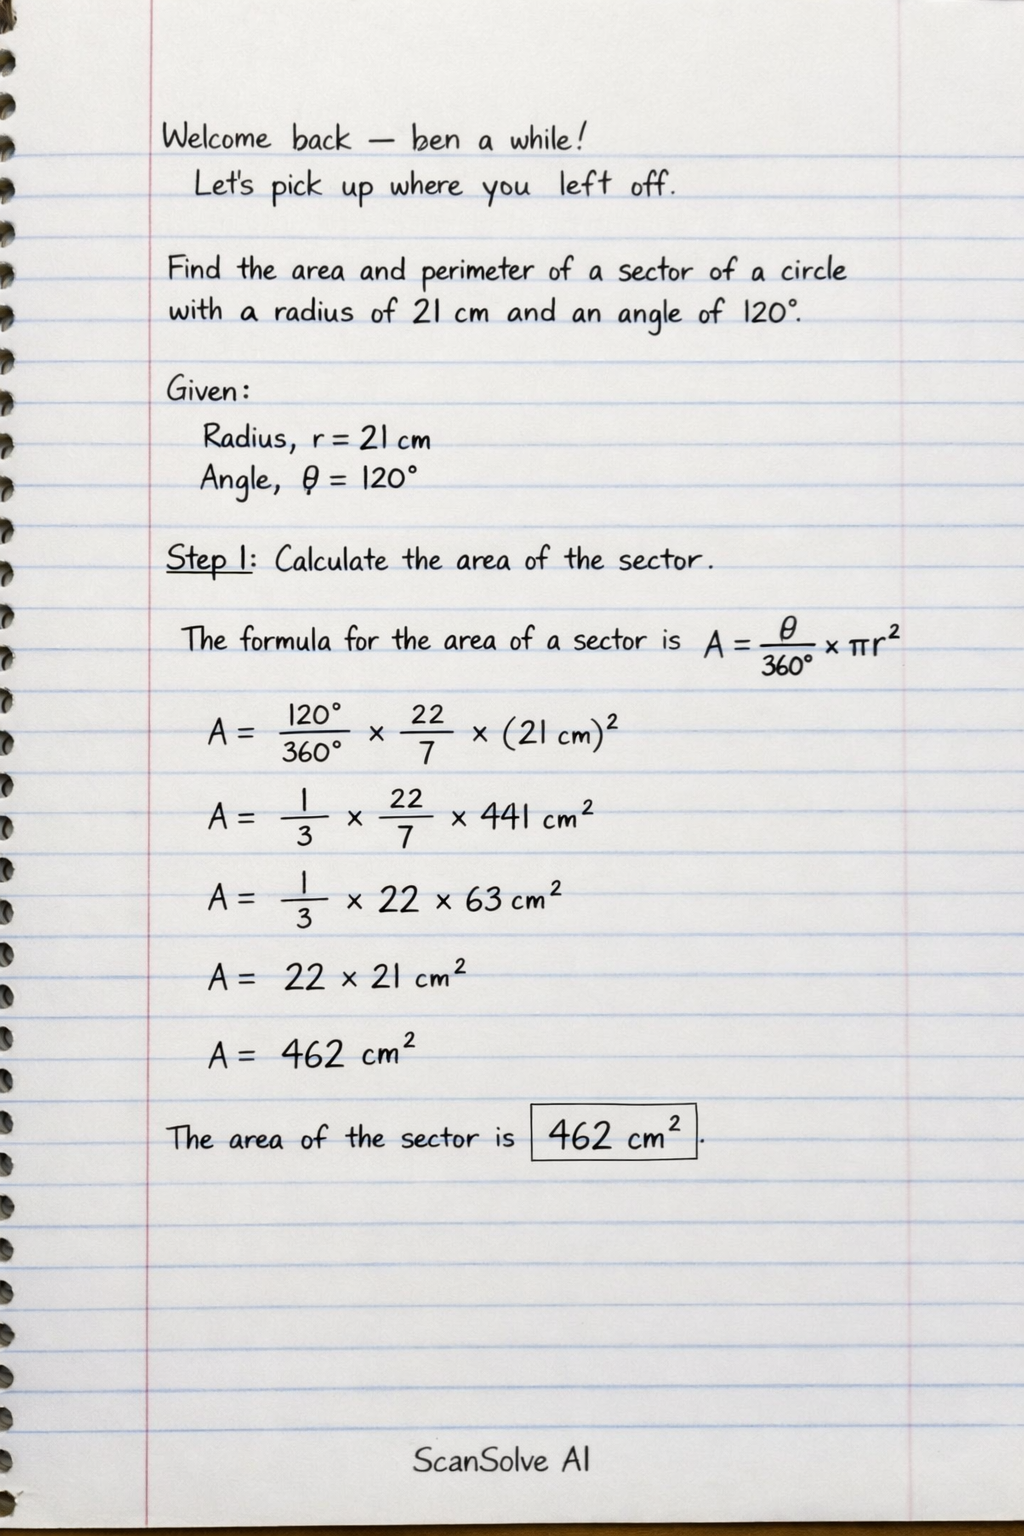 Welcome back — ben a while!
Let's pick up where you left off.
Find the area and perimeter of a sector of a circle
with a radius of 21 cm and an angle of 120°.
Given:
Radius, r = 21 cm
Angle, θ = 120°
Step 1: Calculate the area of the sector.
The formula for the area of a sector is A = θ/360° × πr²
A = 120°/360° × 22/7 × (21 cm)²
A = 1/3 × 22/7 × 441 cm²
A = 1/3 × 22 × 63 cm²
A = 22 × 21 cm²
A = 462 cm²
The area of the sector is 462 cm².
ScanSolve AI